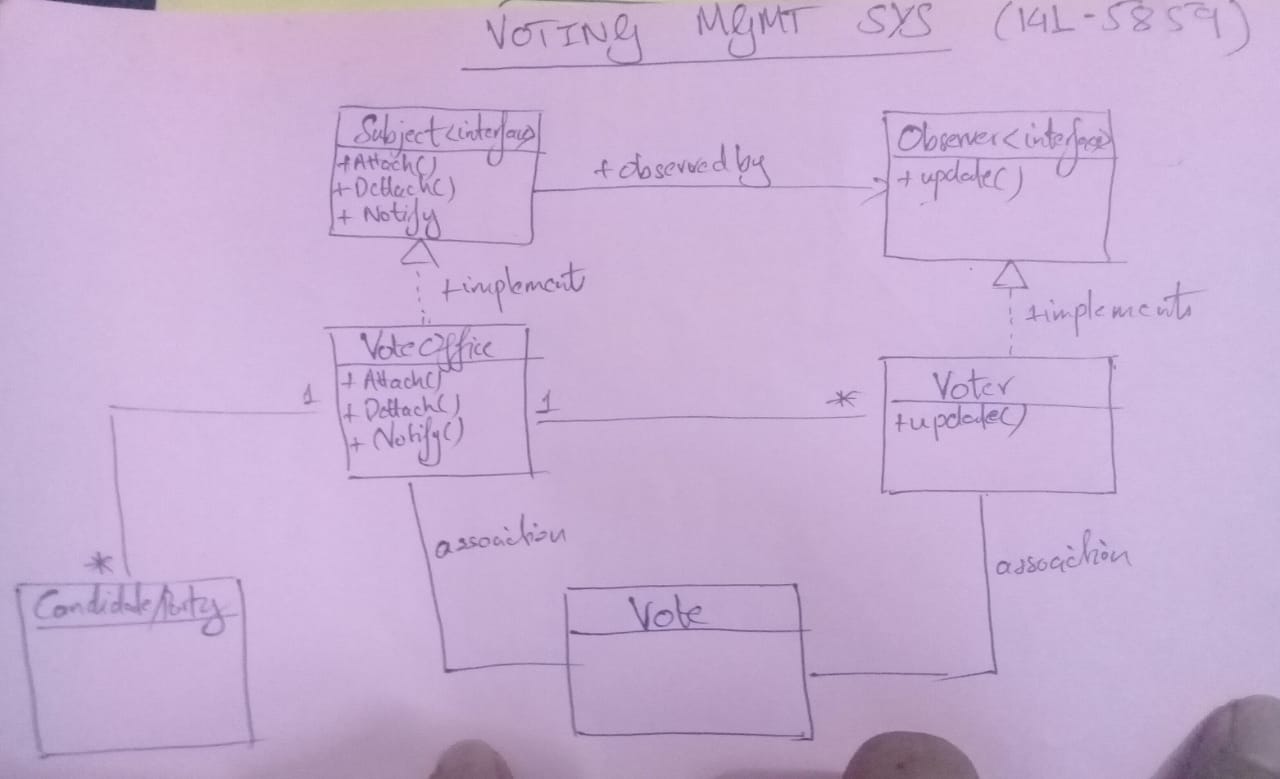 VOTING MGMT SYS (14L-5859)
Subject<interface>
+Attach()
+Dettach()
+ Notify
+observed by
Observer<interface>
+ update()
+implement
+implements
Vote Office
+ Attach()
+ Dettach()
+ Notify()
1
1
*
Voter
+update()
*
Candidate/Party
association
association
Vote